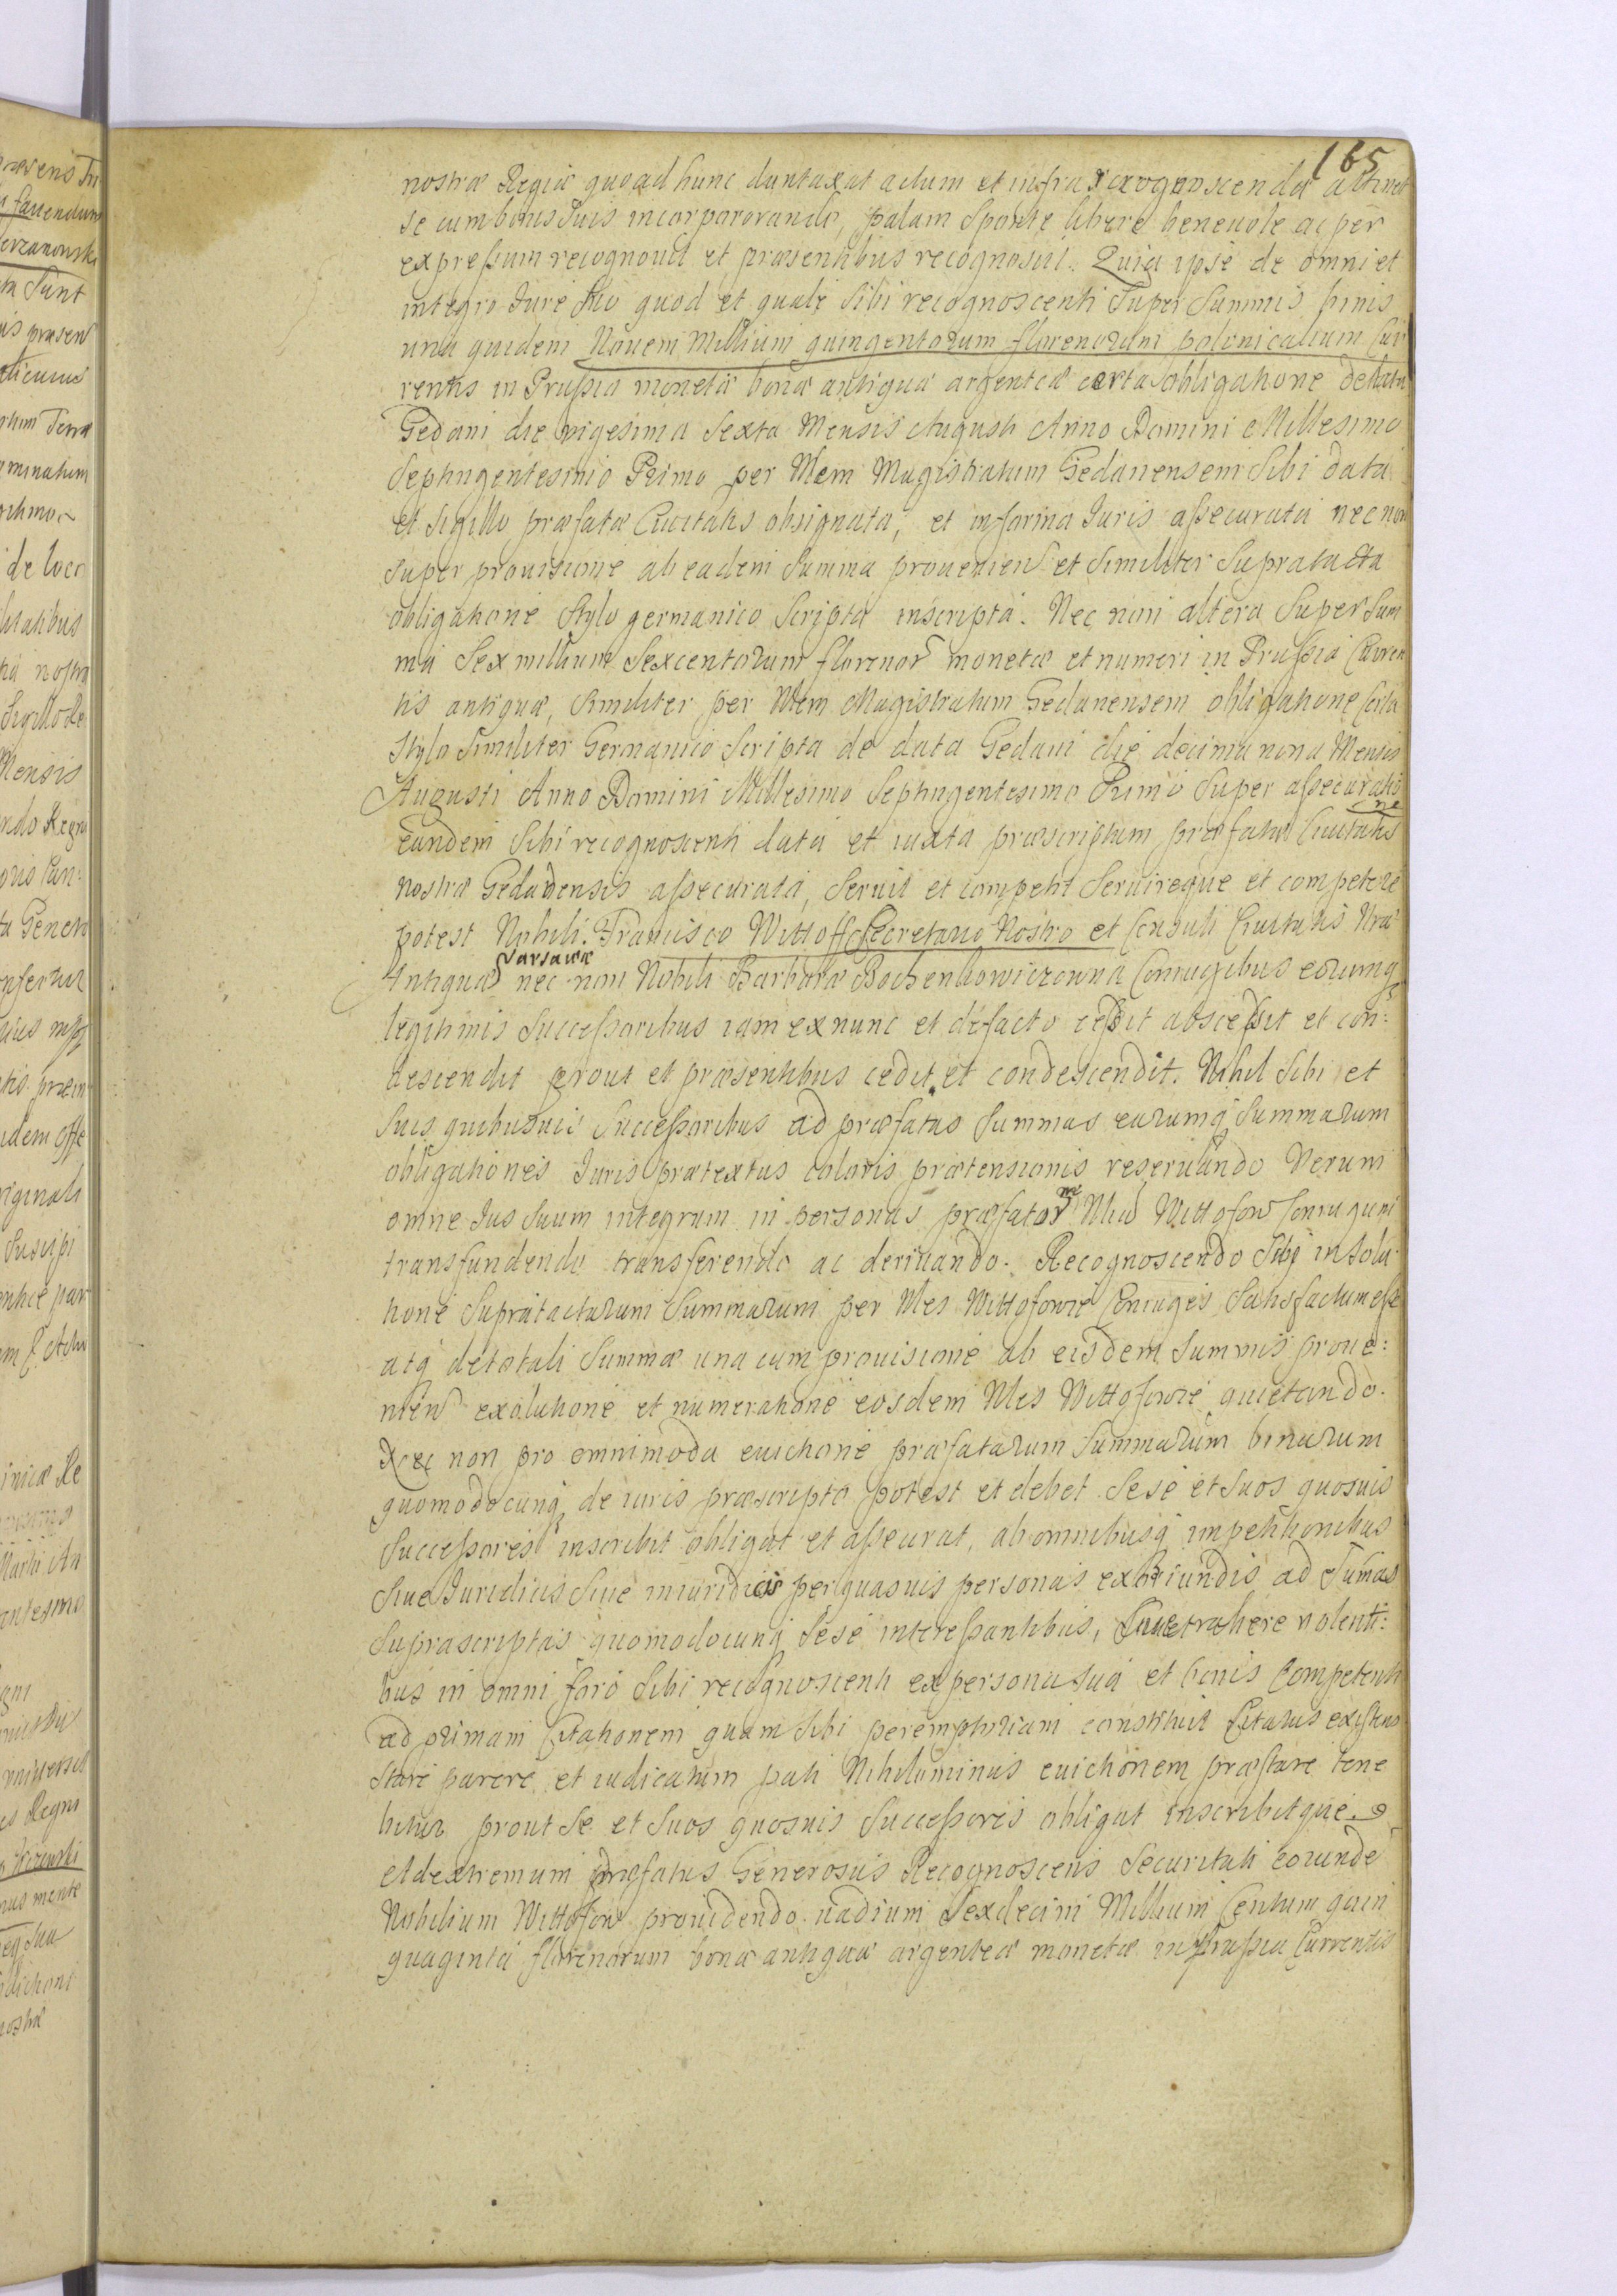 165
nostræ Regiæ quoad hunc duntaxat actum et infra recognoscenda attinet
se cum bonis suis incorporando, palam sponte libere benevole ac per
expressum recognovit et præsentibus recognoscit. Quia ipse de omni et
integro Jure suo quod et quale sibi recognoscenti super summis binis
una quidem Novem Millium quingentorum florenorum polonicalium Cur
rentis in Prussia monetæ bonæ antiquæ argenteæ certa obligatione de data
Gedani die vigesima sexta Mensis Augusti Anno Domini Millesimo
Septingentesimo Primo per Mem Magistratum Gedanensem sibi data
et sigillo præfatæ Civitatis obsignata, et in forma Juris assecurata nec non
super provisione ab eadem summa provenien et similiter supratacta
obligatione stylo germanico scripta inscripta. Nec non altera super sum
ma Sex millium Sexcentorum florenor monetæ et numeri in Prussia Curren
tis antiquæ, similiter per Mem Magistratum Gedanensem obligatione
stylo similiter Germanico scripta de data Gedani die decima nona Mensis
Augusti Anno Domini Millesimo Septingentesimo Primo super assecuratio
ne
eandem sibi recognoscenti data et iuxta præscriptum præfatæ Civitatis
nostræ Gedanensis assecurata, servit et competit servireque et competere
potest Nobili Francisco Wittoff Secretario Nostro et Consuli Civitatis Nræ
Varsaviæ
Antiquæ nec non Nobili Barbaræ Bochenkowiczowna Coniugibus eorumq
legitimis successoribus iam ex nunc et de facto cessit abscessit et con:
descendit prout et præsentibus cedit et condescendit. Nihil sibi et
suis quibusvis successoribus ad præfatas summas earumq summarum
obligationes Juris prætextus coloris prætensionis reservando Verum
omne Jus suum integrum in personas præfator Wittofow Coniugum
transfundendo transferendo ac derivando. Recognoscendo sibi in solu
tione supratactarum summarum per Mes Wittofowie Coniuges satisfactum esse
atq de totali summa una cum provisione ab eisdem summis prove:
nien exolutione et numeratione eosdem Mes Wittofowie quietando.
Nec non pro omnimoda evictione præfatarum summarum binarum
quomodocunq de iuris præscripto potest et debet sese et suos quosvis
successores inscribit obligat et assecurat, ab omnibusq impetitionibus
sive Juridicis sive iniuridicis per quasvis personas exoriundis ad sumas
suprascriptas quomodocunq sese interessantibus, trahere volenti:
bus in omni foro sibi recognoscenti ex persona sua et bonis Competenti
ad primam Citationem quam sibi peremptoriam constituit Citatus existens
stare parere et iudicatum pati Nihilominus evictionem præstare tene
bitur prout se et suos quosvis successores obligat inscribitque.
et dextremum præfatus Generosus Recognoscens securitati eorunde
Nobilium Wittofow providendo vadium Sexdecim Millium Centum quin
quaginta florenorum bonæ antiquæ argenteæ monetæ in Prussia Currentis